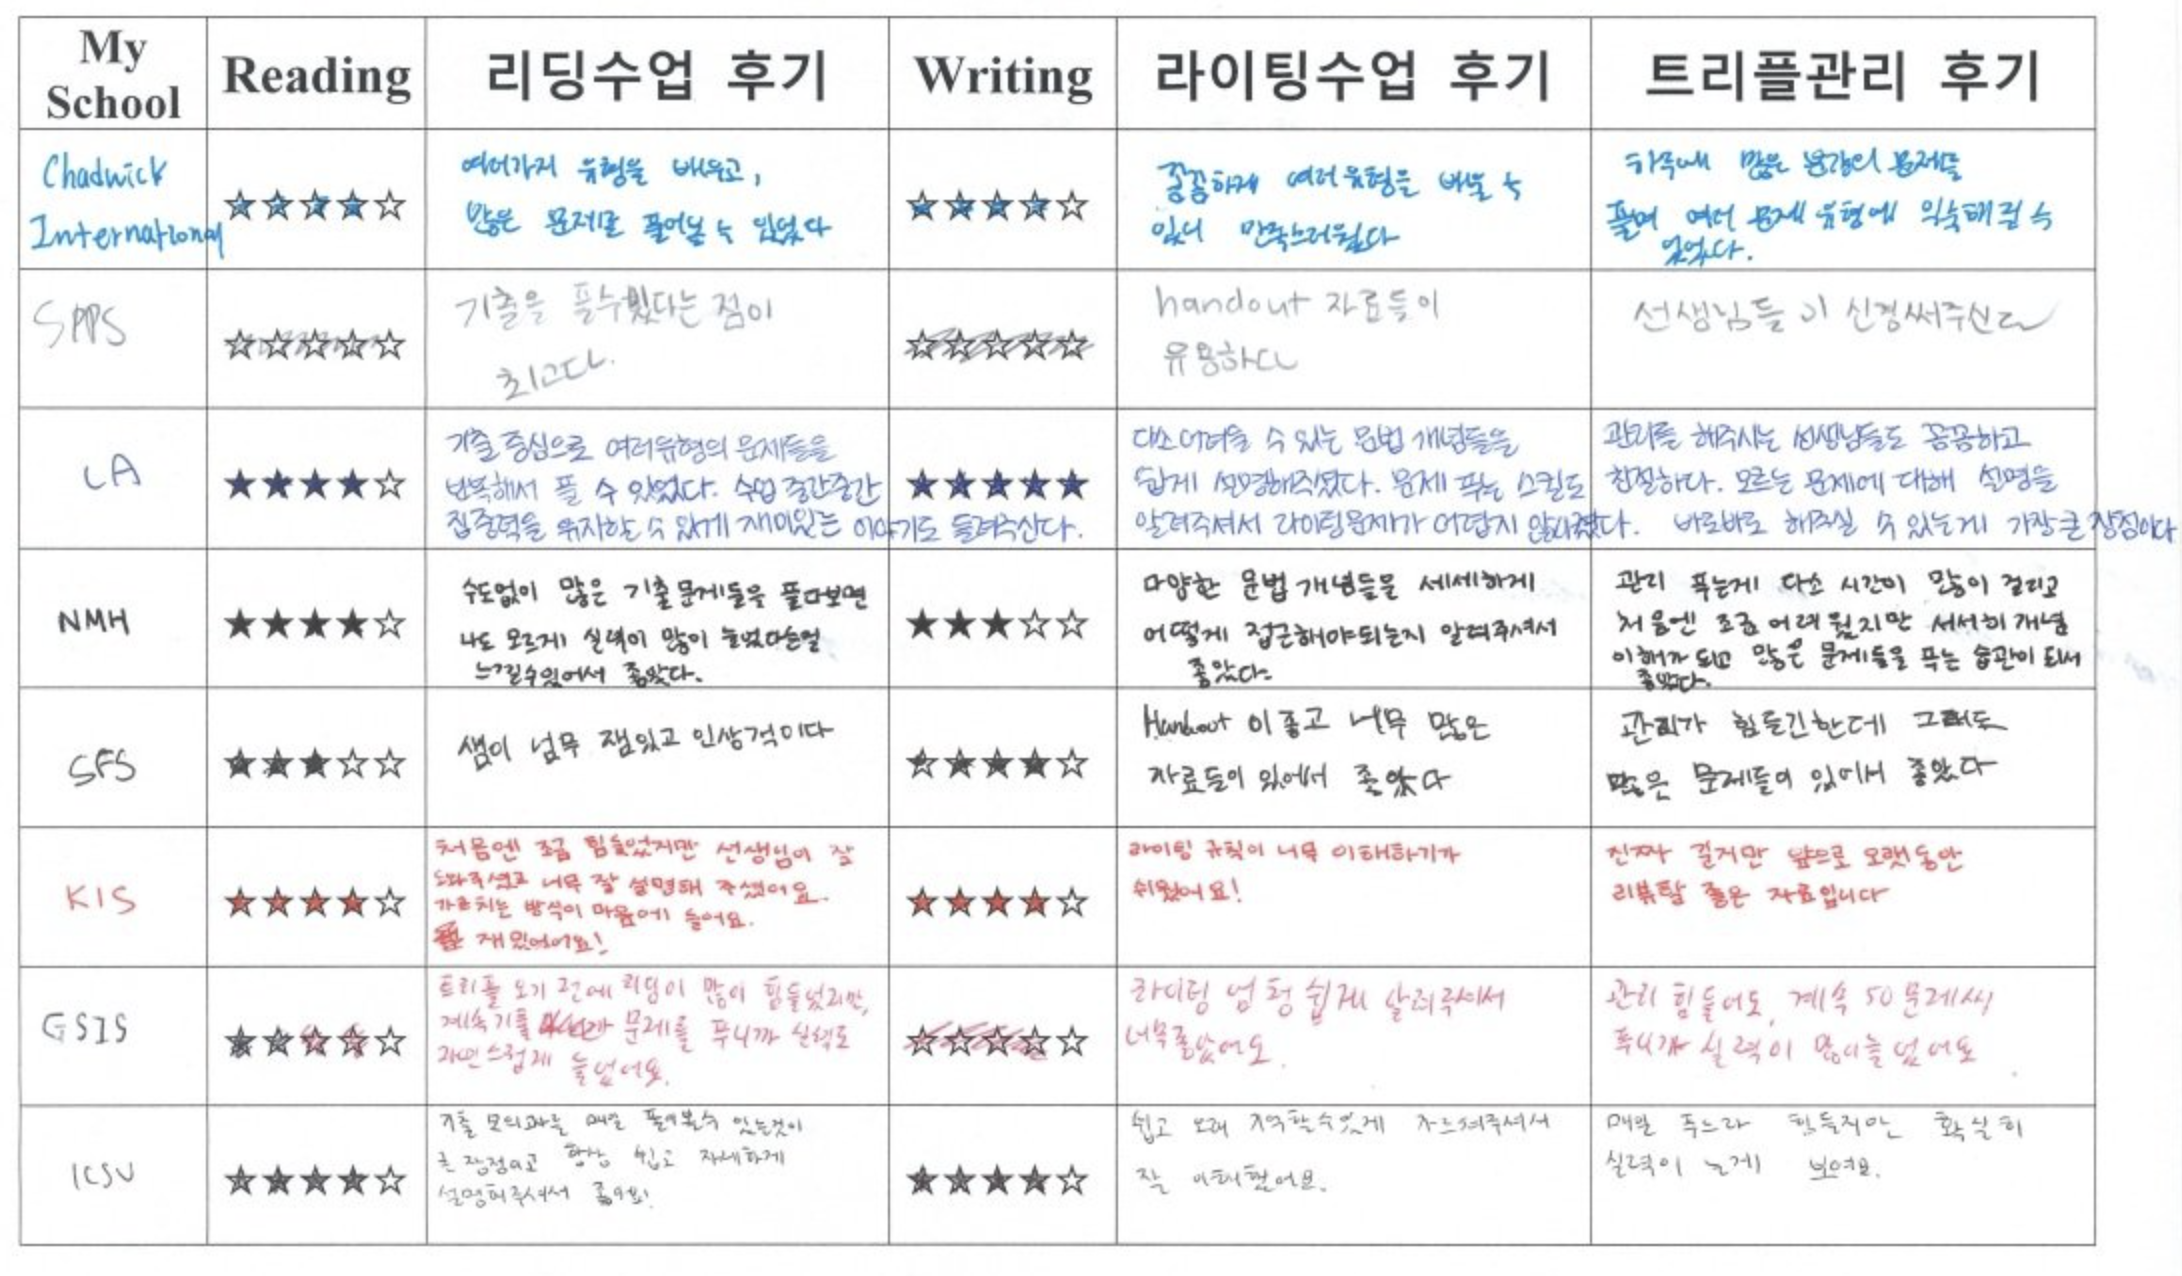 My School
Reading
리딩수업 후기
Writing
라이팅수업 후기
트리플관리 후기
Chadwick
International
여러가지 유형을 배우고,
많은 문제를 풀어볼 수 있었다
꼼꼼하게 여러유형을 배울 수
있어 만족스러웠다
하루에 많은 분량의 문제를
풀며 여러 문제 유형에 익숙해질 수
있었다.
SPPS
기출을 풀수있다는 점이
최고다.
handout 자료들이
유용하다
선생님들이 신경써주신다
LA
기출 중심으로 여러유형의 문제들을
반복해서 풀 수 있었다. 수업 중간중간
집중력을 유지할 수 있게 재미있는 이야기도 들려주신다.
다소 어려울 수 있는 문법 개념들을
쉽게 설명해주셨다. 문제 푸는 스킬도
알려주셔서 라이팅문제가 어렵지 않아졌다.
관리를 해주시는 선생님들도 꼼꼼하고
친절하다. 모르는 문제에 대해 설명을
바로바로 해주실 수 있는게 가장 큰 장점이다
NMH
수도없이 많은 기출문제들을 풀다보면
나도 모르게 실력이 많이 늘었다는걸
느낄수있어서 좋았다.
다양한 문법 개념들을 세세하게
어떻게 접근해야되는지 알려주셔서
좋았다.
관리 푸는게 다소 시간이 많이 걸리고
처음엔 조금 어려웠지만 서서히 개념
이해가 되고 많은 문제들을 푸는 습관이 되서
좋았다.
SFS
샘이 넘무 잼있고 인상적이다
Handout 이 좋고 너무 많은
자료들이 있어서 좋았다
관리가 힘들긴한데 그래도
많은 문제들이 있어서 좋았다
KIS
처음엔 조금 힘들었지만 선생님이 잘
도와주셨고 너무 잘 설명해 주셨어요.
가르치는 방식이 마음에 들어요.
재밌었어요!
라이팅 규칙이 너무 이해하기가
쉬웠어요!
진짜 길지만 앞으로 오랫동안
리뷰할 좋은 자료입니다
GSIS
트리플 오기 전에 리딩이 많이 힘들었지만,
계속 기출 문제를 푸니까 실력도
자연스럽게 늘었어요.
라이팅 엄청 쉽게 알려주셔서
너무좋았어요.
관리 힘들어도, 계속 50문제씩
푸니까 실력이 많이늘었어요
ICSU
기출 모의고사를 매일 풀어볼수 있는것이
큰 장점이고 항상 쉽고 자세하게
설명해주셔서 좋아요!
쉽고 오래 기억할수있게 가르쳐주셔서
잘 이해했어요.
매일 푸느라 힘들지만 확실히
실력이 는게 보여요.